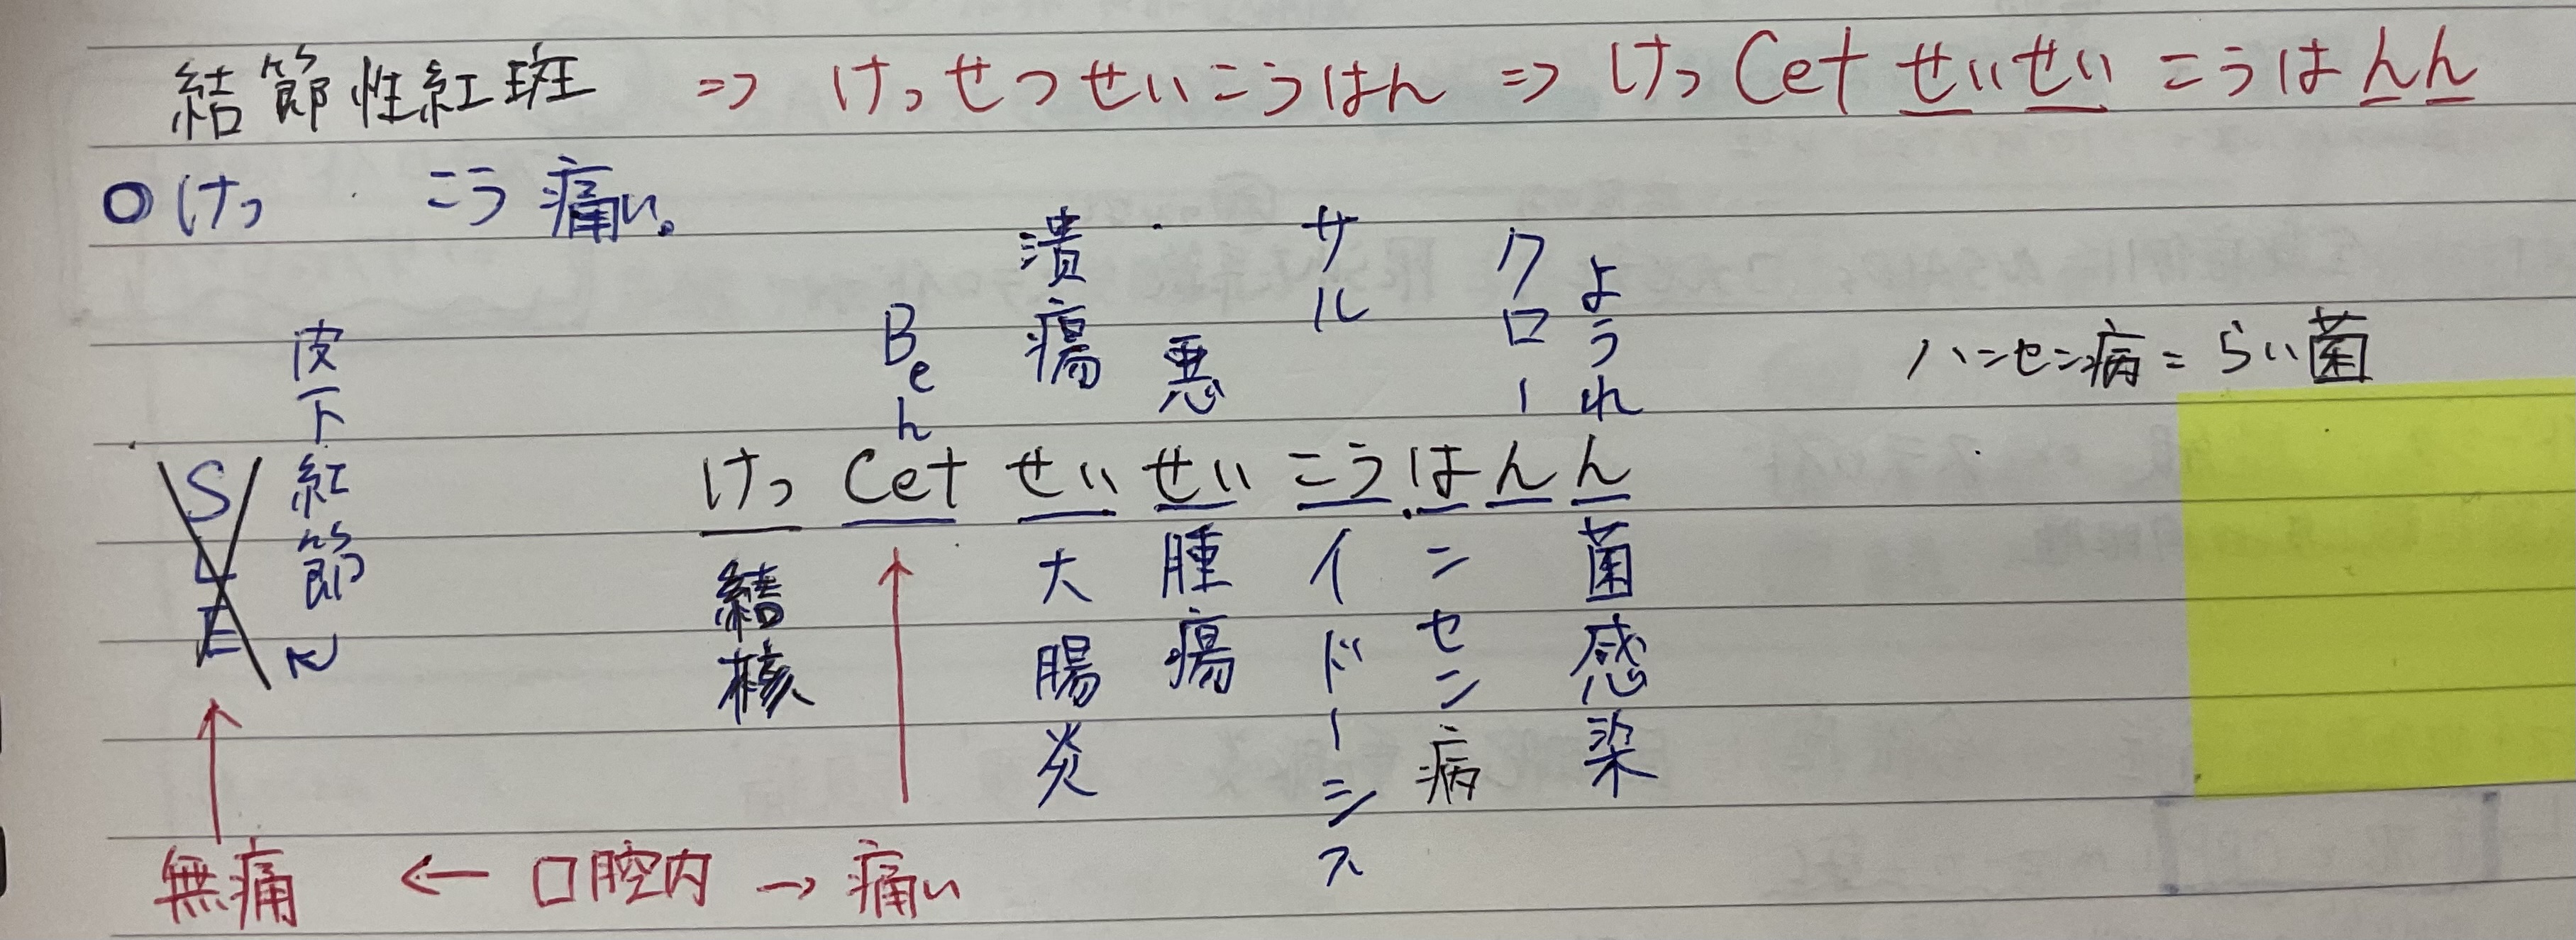 結節性紅斑 ⇒ けっせつせいこうはん ⇒ けっCetせいせいこうはんん
○けっ こう痛い。
SLE
皮下紅節
けっCetせいせいこうはんん
結核
Beh
潰瘍
大腸炎
悪
腫瘍
サル
イドーシス
ンセン病
クロー
ようれ
菌感染
ハンセン病=らい菌
無痛 ← 口腔内 → 痛い